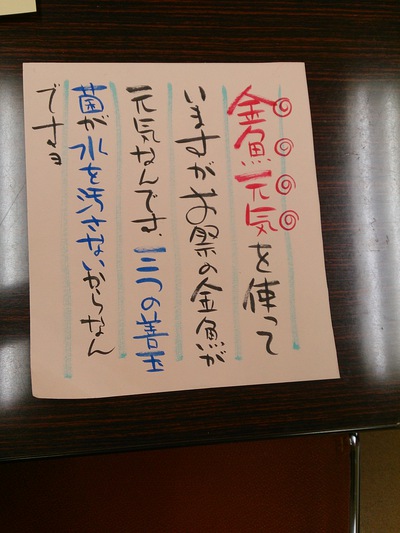 金魚元気を使って
いますがお祭の金魚が
元気なんです。三つの善玉
菌が水を汚さないからなん
ですョ